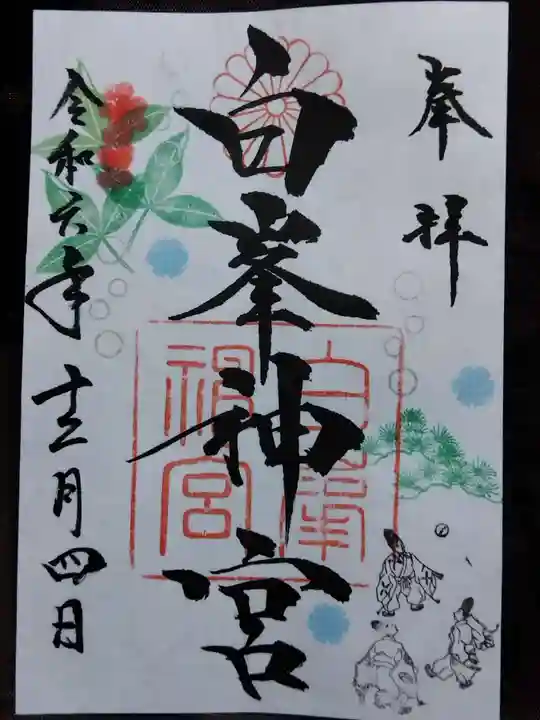 奉拝
白峯神宮
令和六年十二月四日
白峯神宮